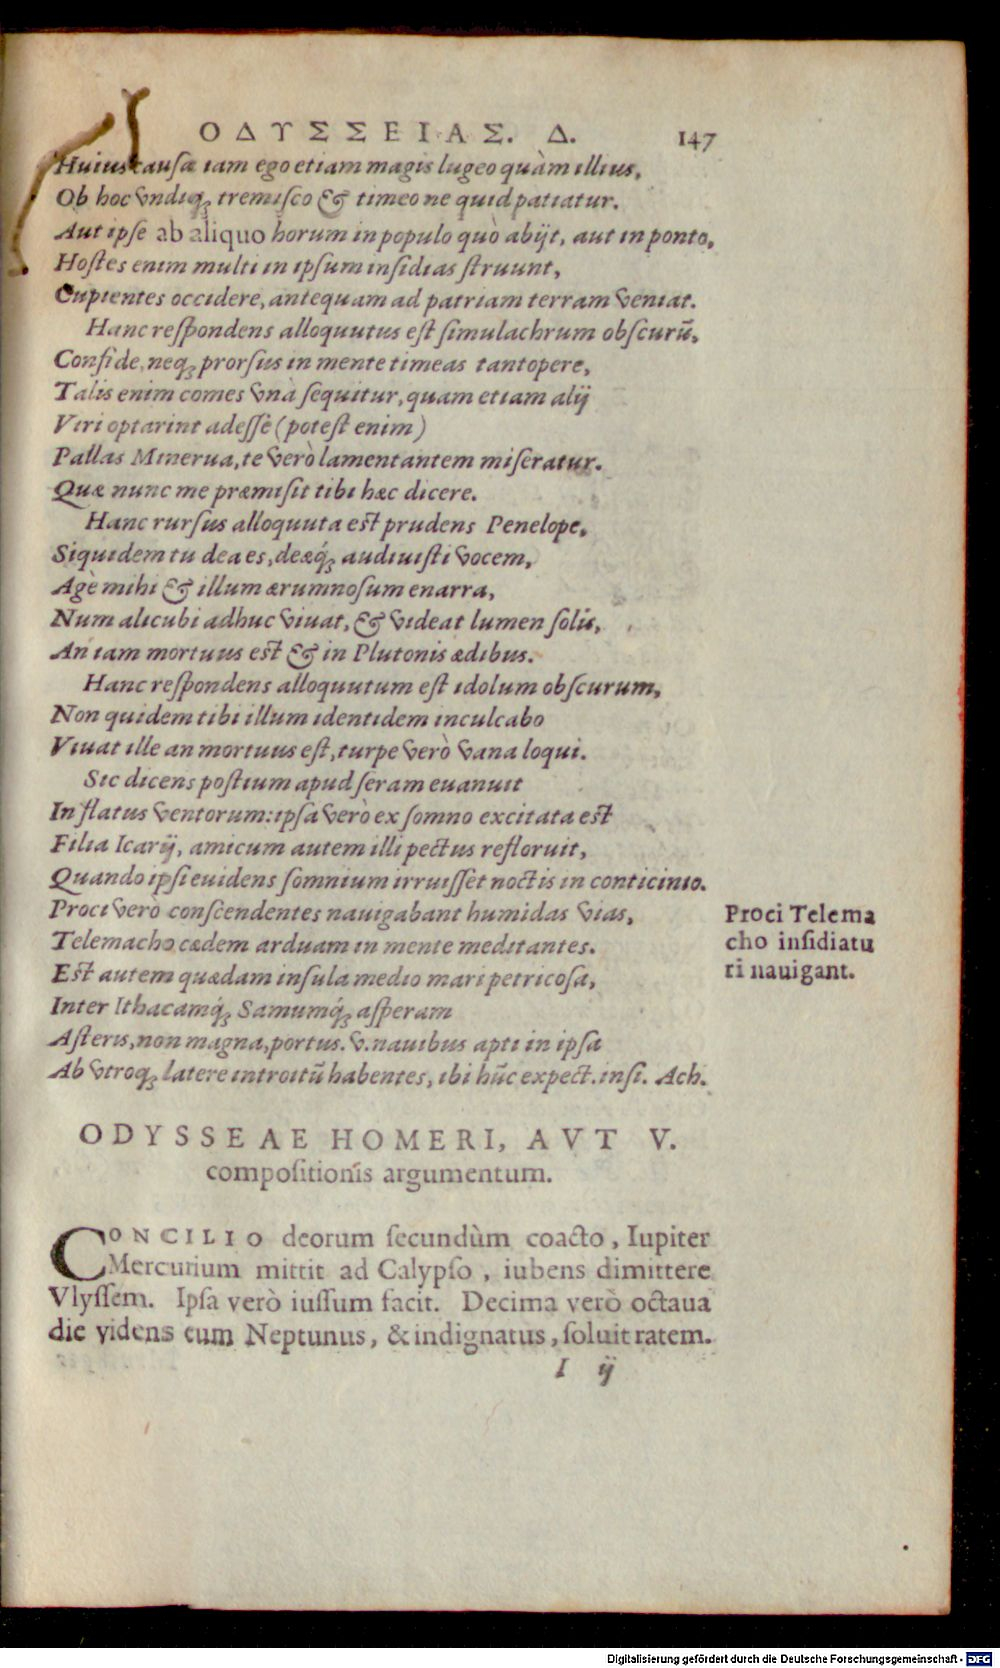 ΟΔΥΣΣΕΙΑΣ. Δ. 147
Huius causæ iam ego etiam magis lugeo quàm illius,
Ob hoc vndiq; tremisco & timeo ne quid patiatur.
Aut ipse ab aliquo horum in populo quò abijt, aut in ponto,
Hostes enim multi in ipsum insidias struunt,
Cupientes occidere, antequam ad patriam terram veniat.
Hanc respondens alloquutus est simulachrum obscurū,
Confide, neq; prorsus in mente timeas tantopere,
Talis enim comes vnà sequitur, quam etiam alij
Viri optarint adesse (potest enim)
Pallas Minerua, te verò lamentantem miseratur.
Quæ nunc me præmisit tibi hæc dicere.
Hanc rursus alloquuta est prudens Penelope,
Siquidem tu dea es, deæq́; audiuisti vocem,
Agè mihi & illum ærumnosum enarra,
Num alicubi adhuc viuat, & videat lumen solis,
An iam mortuus est & in Plutonis ædibus.
Hanc respondens alloquutum est idolum obscurum,
Non quidem tibi illum identidem inculcabo
Viuat ille an mortuus est, turpe verò vana loqui.
Sic dicens postium apud seram euanuit
In flatus ventorum: ipsa verò ex somno excitata est
Filia Icarij, amicum autem illi pectus refloruit,
Quando ipsi euidens somnium irruisset noctis in conticinio.
Proci verò conscendentes nauigabant humidas vias,
Telemacho cædem arduam in mente meditantes.
Est autem quædam insula medio mari petricosa,
Inter Ithacamq́; Samumq́; asperam
Asteris, non magna, portus. v. nauibus apti in ipsa
Ab vtroq; latere introitū habentes, ibi hūc expect. insi. Ach.
Proci Telema
cho insidiatu
ri nauigant.
ODYSSEAE HOMERI, AVT V.
compositionis argumentum.
CONCILIO deorum secundùm coacto, Iupiter
Mercurium mittit ad Calypso, iubens dimittere
Vlyssem. Ipsa verò iussum facit. Decima verò octaua
die videns eum Neptunus, & indignatus, soluit ratem.
I ij
Digitalisierung gefördert durch die Deutsche Forschungsgemeinschaft - DFG